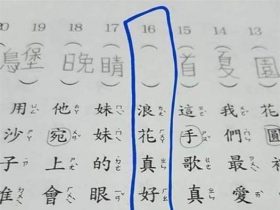 13 (園) 花園
14 (夏) 我們最愛
15 (首) 這手歌真
16 ( ) 浪花真好
17 (睛) 妹妹的眼
18 (晚) 他宛上會
19 (堡) 用沙子堆